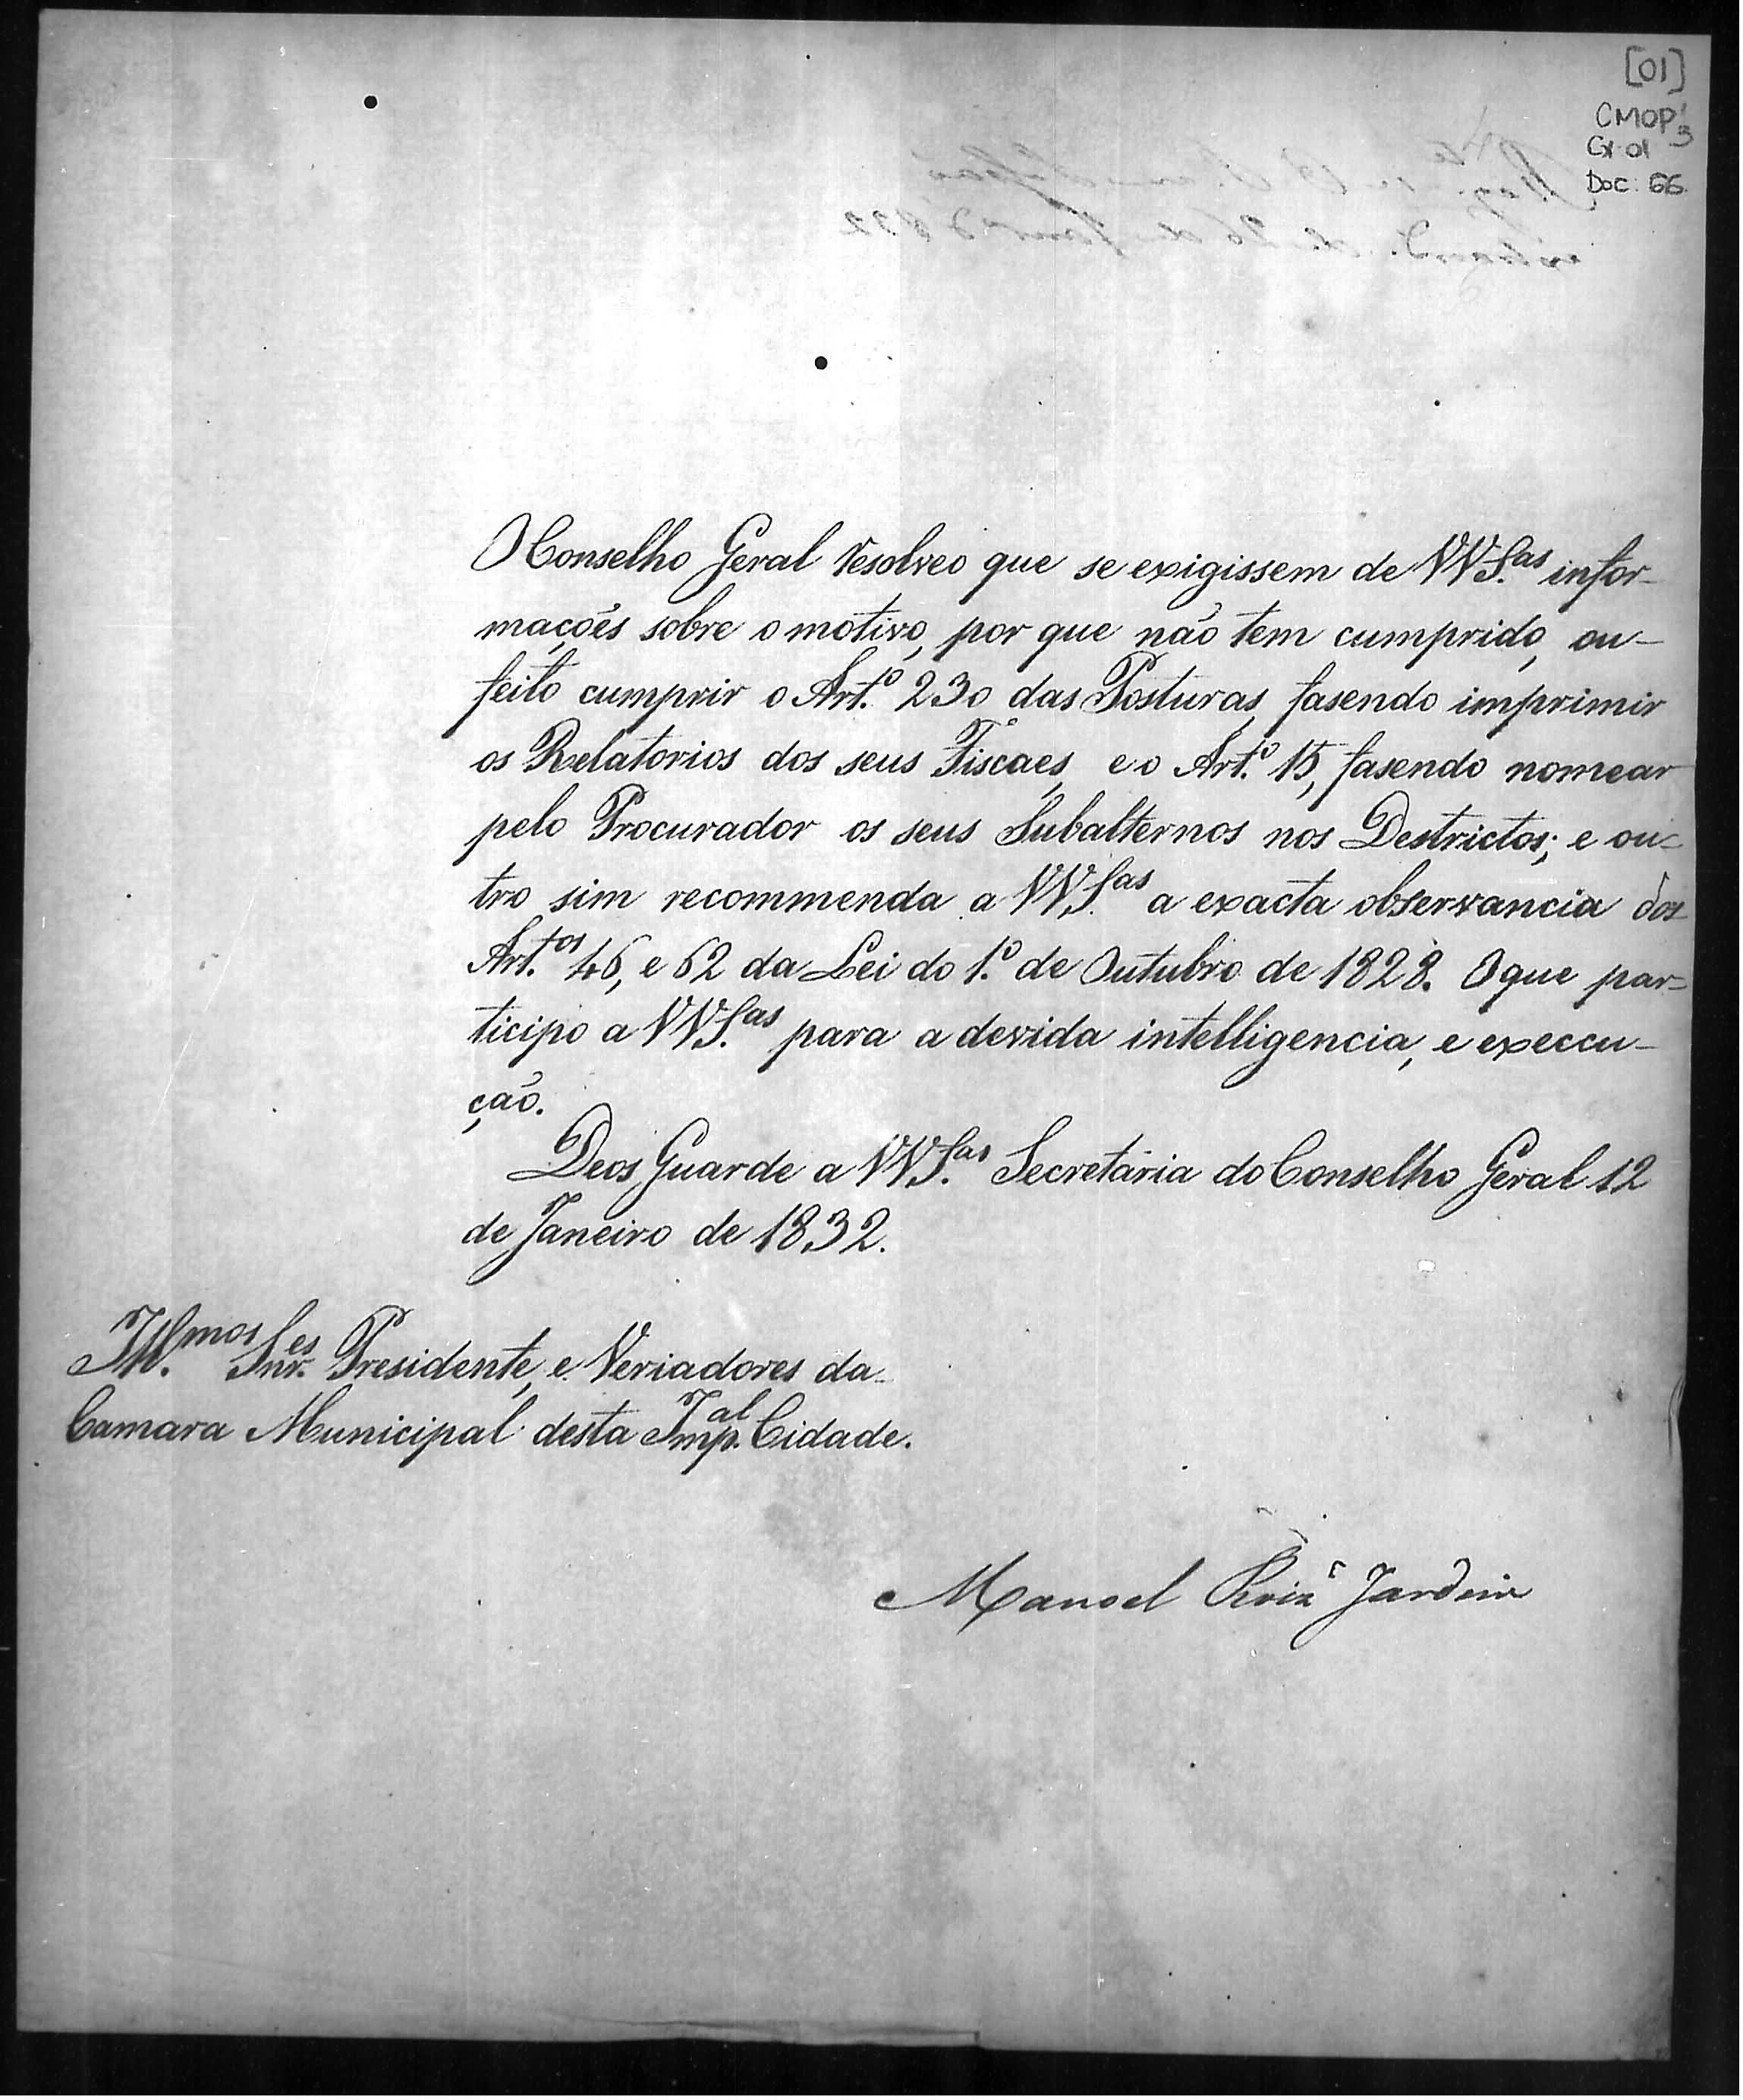 [01]
CMOP 3
Cx 01
Doc: 66
O Conselho Geral resolveo que se exigissem de VVS.as infor-
mações sobre o motivo, por que não tem cumprido, ou-
feito cumprir o Art.º 230 das Posturas, fasendo imprimir
os Relatorios dos seus Fiscaes, e o Art.º 15, fasendo nomear
pelo Procurador os seus Subalternos nos Destrictos; e ou-
tro sim recommenda a VVS.as a exacta observancia dos
Art.os 46, e 62 da Lei do 1.º de Outubro de 1828. O que par-
ticipo a VVS.as para a devida intelligencia, e execcu-
ção.
Deos Guarde a VVS.as Secretaria do Conselho Geral 12
de Janeiro de 1832.
Ill.mos Snr.es Presidente, e Veriadores da
Camara Municipal desta Imp.al Cidade.
Manoel Jardim